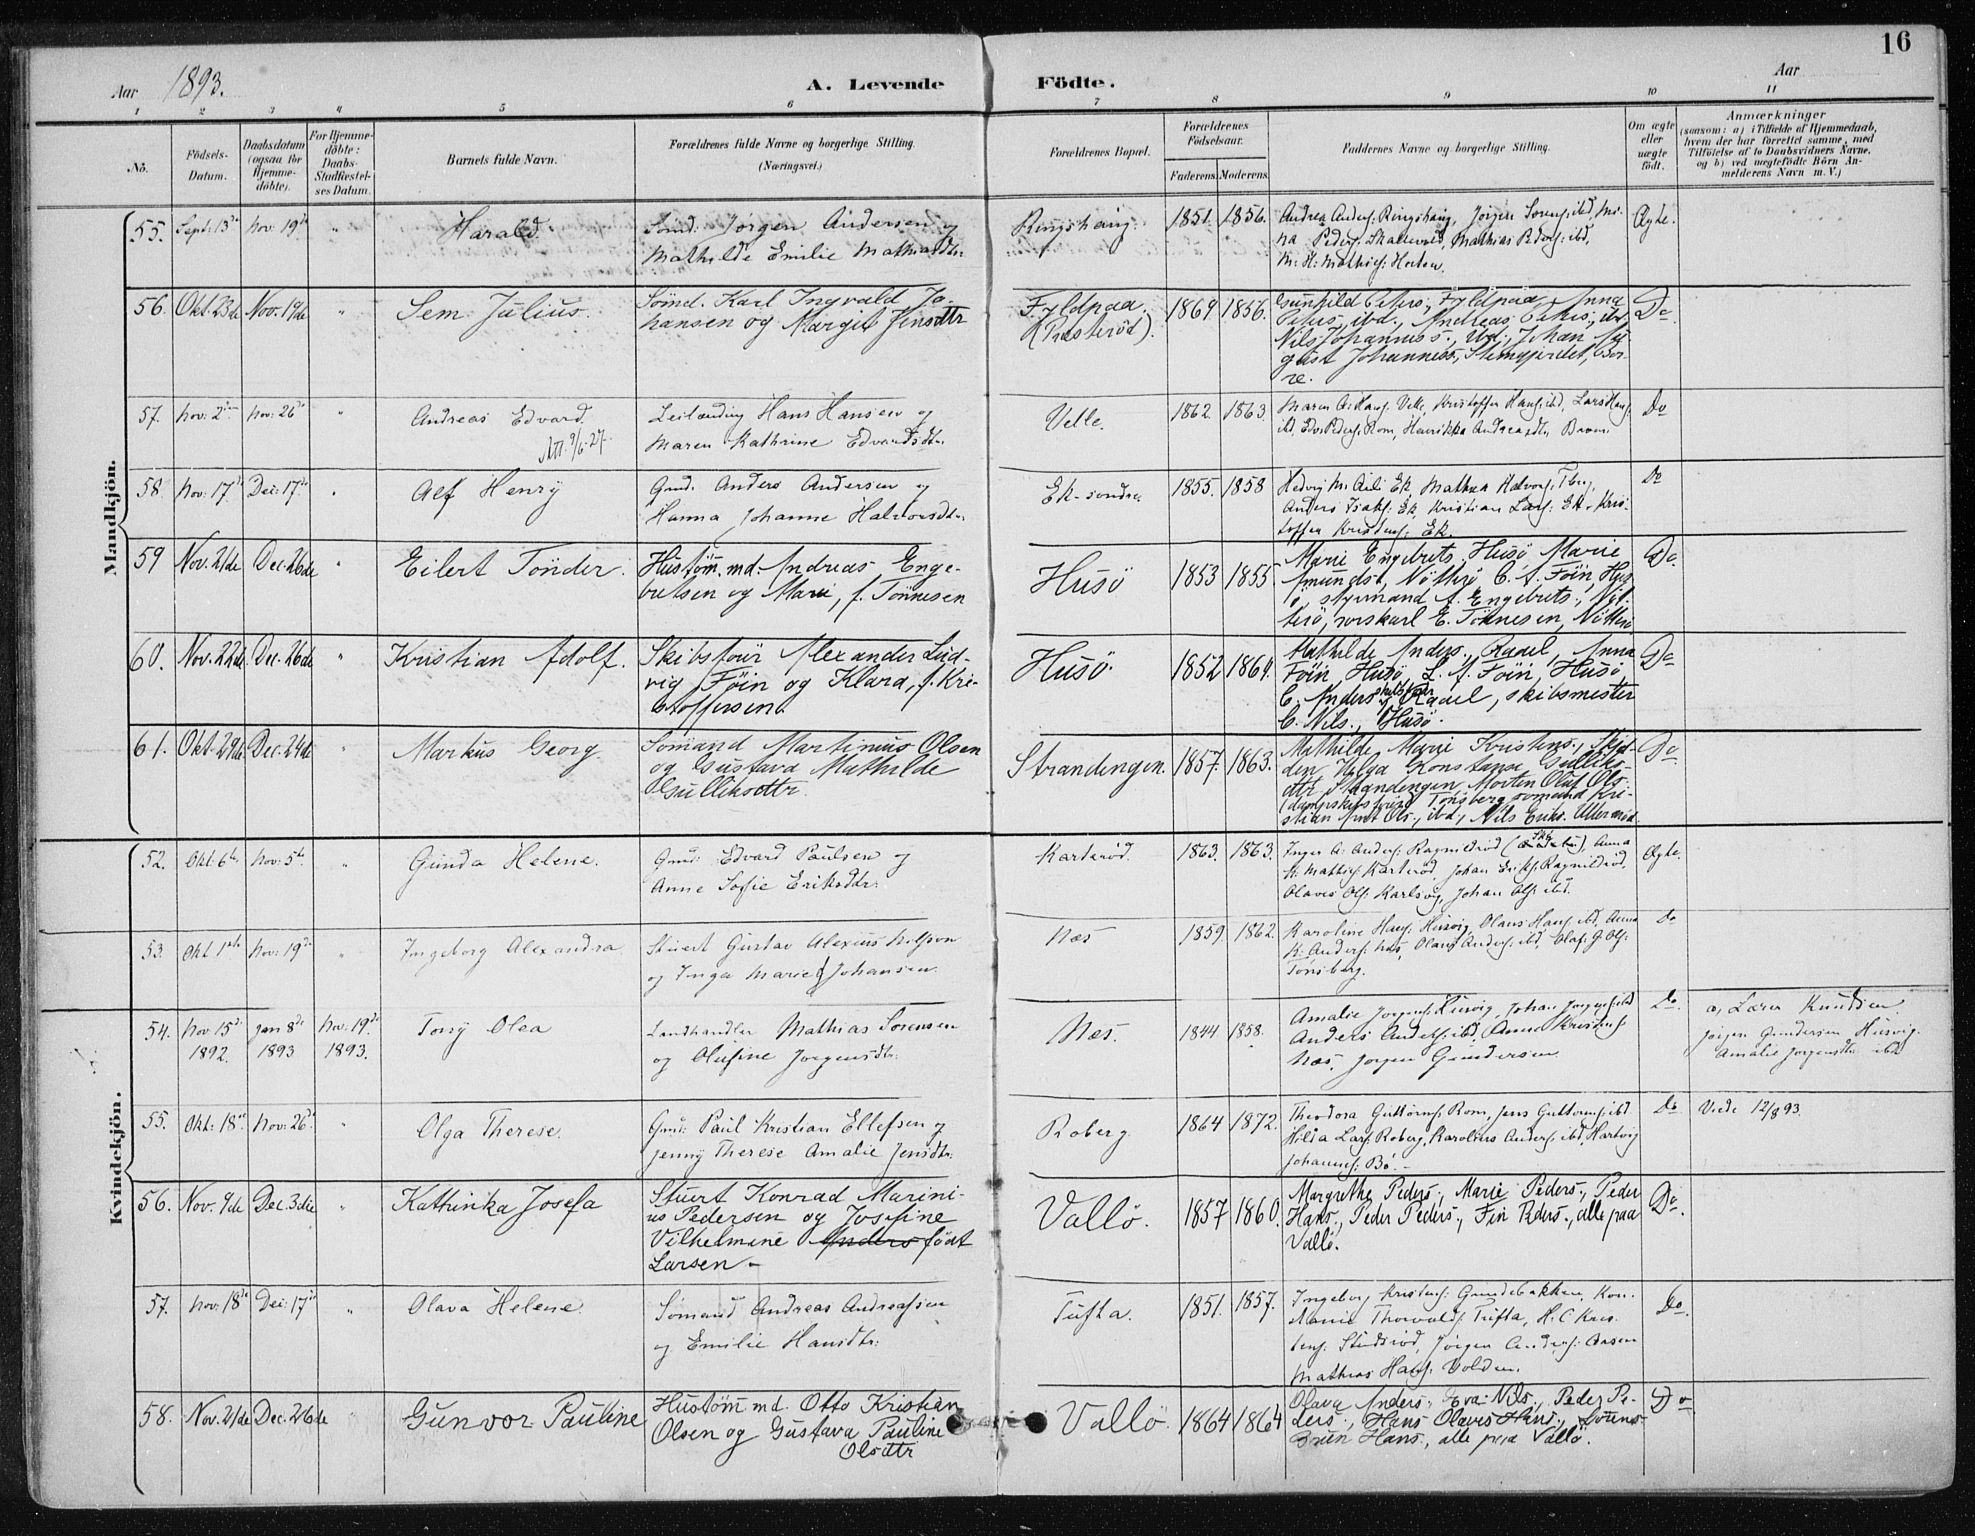 16
Aar 1893. A. Levende Fødte. Aar
1 2 3 4 5 6 7 8 9 10 11
No.
Fødsels-Datum.
Daabsdatum (ogsaa for Hjemme-døbte).
For Hjemme-døbte: Daabs-Stadfæstel-ses Datum.
Barnets fulde Navn.
Forældrenes fulde Navne og borgerlige Stilling.
(Næringsvei.)
Forældrenes Bopæl.
Forældrenes Fødselsaar.
Faderens. Moderens.
Faddernes Navne og borgerlige Stilling.
Om ægte eller uægte født.
Anmærkninger
(saasom: a) i Tilfælde af Hjemmedaab, hvem der har forrettet samme, med Tilføielse af to Daabsvidners Navne, og b) ved uægtefødte Børn An-melderens Navn m. V.)
Mandkjøn.
55. Sept: 13de Nov: 19de " Harald.
Sømd: Jørgen Andersen og
Mathilde Emilie Mathiasdtr:
Ringshaug. 1851. 1856.
Andrea Anders: Ringshaug, Jørgen Sørens: ibd, Mi-
na Peders: Skallevold, Mathias Peders: ibd,
M: H: Mathis: Horten.
Ægte.
56. Okt. 23de Nov. 19de " Sem Julius
Sømd. Karl Ingvald Jo-
hansen og Margit Jensdtr
Fyldpaa.
(Presterød). 1869 1856.
Gunhild Peters., Fyldpaa, Anna
Peters., ibd., Andreas Peters., ibd
Nils Johanness., ibd., Johan Au-
gust Johanness., Bor-
re.
Do
57. Nov: 2den Nov: 26de " Andreas Edvard
Att. 9/6-27.
Leilænding Hans Hansen og
Maren Kathrine Edvardsdtr.
Velle. 1862. 1863.
Maren A: Hans: Velle, Kristoffer Hans: ibd, Lars Hans:
ibd, Edv: Peders: Rom, Henrikka Andreasdtr,
Do
58. Nov: 17de Dec: 17de " Alf Henry
Gmd. Anders Andersen og
Hanna Johanne Halvorsdtr.
Ek-søndre 1855. 1858
Hedvig M: Ek, Mathea Halvors:
Anders Isaks: Ek, Kristian Lars: Ek, Kris-
toffer Kristens: Ek.
Do
59 Nov. 21de Dec. 26de " Eilert Tønder.
Hustøm.md. Andreas Enge-
bretsen og Marie, f. Tønnesen
Husø 1853 1855.
Marie Engebrets. Husø Marie
Amunds., Nøtterø C. A. Føin, Hus-
ø, styrmand A. Engebrets., Nøt-
terø, E. Tønnesen, Nøtterø
Do.
60. Nov. 22de Dec. 26de " Kristian Adolf.
Skibsfører Alexander Lud-
vig Føin og Klara, f. Kri-
stoffersen.
Husø. 1852 1864.
Mathilde Anders., Ragel, Anna
Føin, Husø, L. A. Føin, Husø,
C. Anders., Ragel, skibsmester
C. Nils., Husø.
Do
61. Okt. 29de Dec. 24de " Markus Georg.
Sømand Martinius Olsen
og Gustava Mathilde
Gulliksdtr.
Strandengen. 1857. 1863.
Mathilde Marie Kristens.,
Helga Konstanse Gulliks-
dtr, Strandengen, Morten Olaf Ols.
Tønsberg, sømand Kri-
stian Ols., ibd., Nils Eriks.
Do.
Kvindekjøn.
52. Okt: 6te Nov: 5te " Gunda Helene.
Gmd: Edvard Paulsen og
Anne Sofie Eriksdtr.
Karterød. 1863. 1863.
Inger A: Anders: Ragnildrød, Anna
M: Mathis: Karterød, Johan Eriks: Ragnildrød,
Olaves Ols: Karlsvig, Johan Ols: ibd.
Ægte.
53. Okt. 1ste Nov: 19de " Ingeborg Alexandra
Stuert Gustav Alexius Nilsson
og Inga Marie f. Johansen.
Næs 1859. 1862.
Karoline Hans: Husvig, Olaus Hans: ibd, Anna
K: Anders: Næs, Olaus Anders: ibd, Olaf G Ols:
Tønsberg.
Do
54. Nov 15de 1892. Jan 8de 1893 Nov: 19de 1893. Tony Olea
Landhandler Mathias Sørensen
og Olufine Jørgensdtr.
Næs. 1844 1858.
Amalie Jørgens: Husvig, Johan Jørgens: ibd
Anders Anders: ibd, Anne Kristens:
Næs, Jørgen Gundersen
Do
a, Laura Knudsen
Jørgen Gundersen Husvig.
Amalie Jørgensdtr. ibd
55. Okt: 18de Nov: 26de " Olga Therese.
Gmd: Paul Kristian Ellefsen og
Jenny Therese Amalie Jensdtr:
Roberg. 1864 1872.
Theodora Guttorms: Rom, Jens Guttorms: ibd
Hilda Lars: Roberg, Karolius Anders: ibd, Hartvig
Johanns: Bø.
Do. Viede 12/8 93.
56. Nov. 9de Dec. 3die " Kathinka Josefa
Stuert Konrad Marini-
us Pedersen og Josefine
Vilhelmine Anders født
Larsen.
Vallø. 1857 1860.
Margrethe Peders., Marie Peders., Peder
Hans., Peder Peders., Fin Peders., alle paa
Vallø.
Do.
57. Nov: 18de Dec: 17de " Olava Helene.
Sømand Andreas Andreassen
og Emilie Hansdtr:
Tufta. 1851. 1857.
Ingeborg Kristens: Gundebakken, Kon.
Marie Thorvalds: Tufta, H. C Kris-
tens: Jørgen Anders:
Mathias Hans: Volden.
Do.
58. Nov. 21de Dec. 26de " Gunvor Pauline
Hustøm md. Otto Kristian
Olsen og Gustava Pauline
Olsdtr
Vallø 1864 1864
Olava Anders., Eva Nils., Peder Pe-
ders., Hans Olaves Hans., Lorens
Bruun Hans., alle paa Vallø.
Do